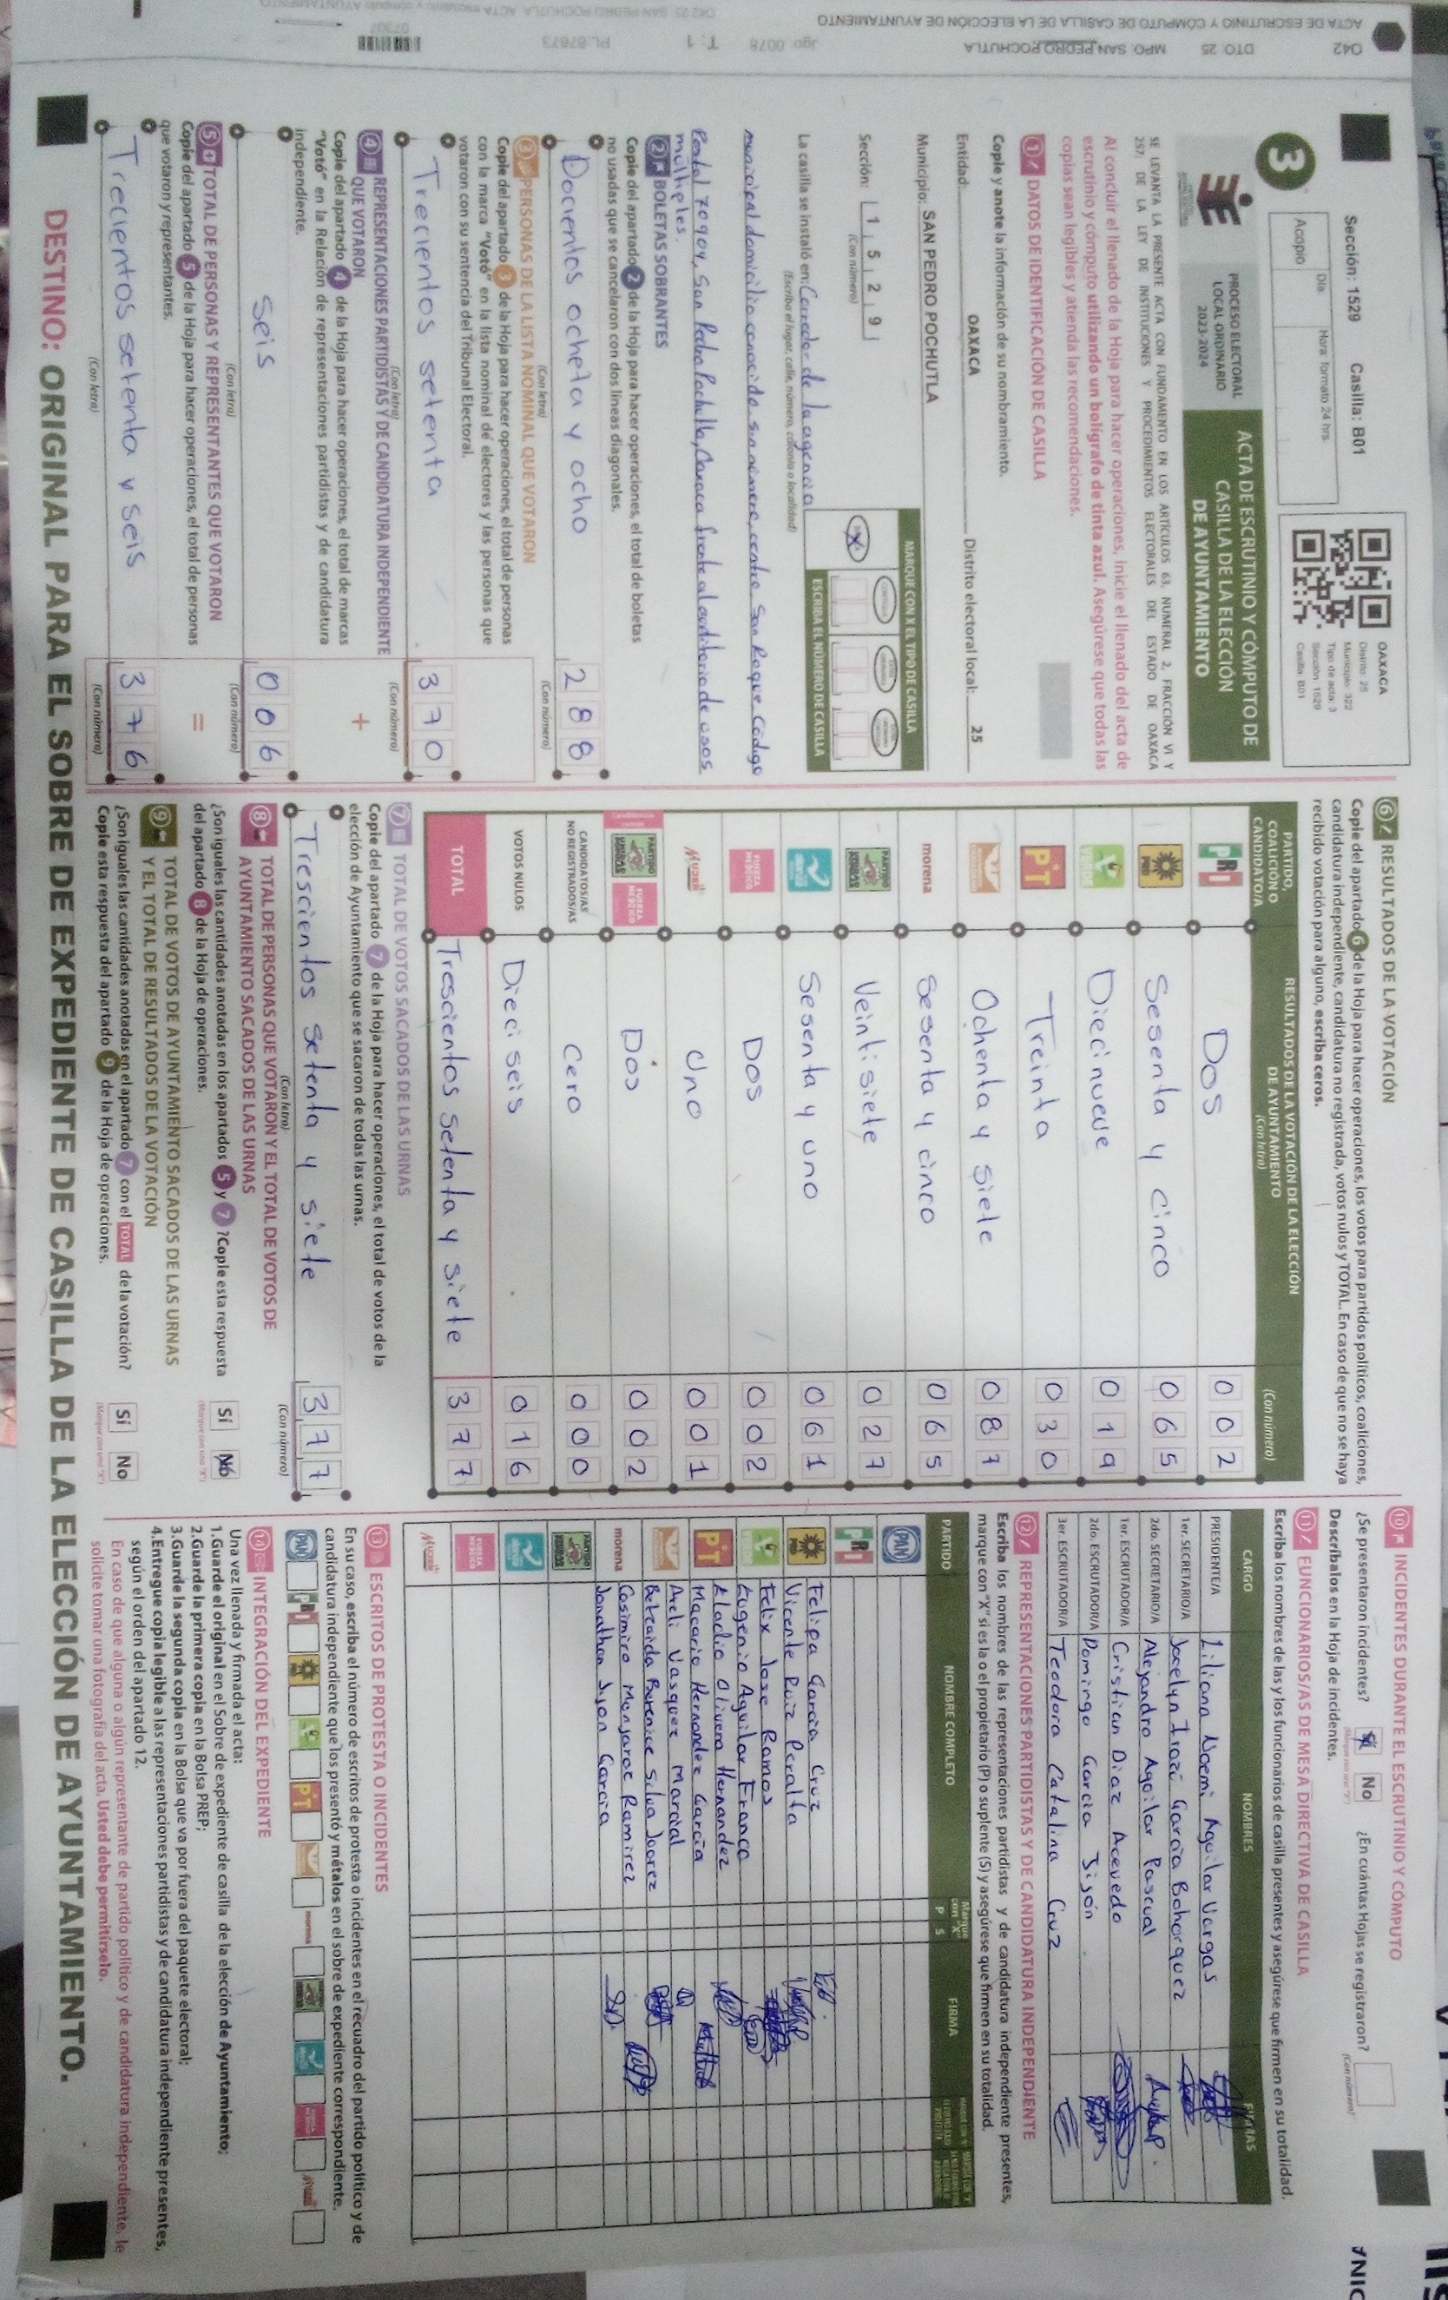 Sección: 1529 Casilla: B01
Día: Hora: formato 24 hrs.
Acopio
OAXACA
Distrito: 25
Municipio: 322
Tipo de acta: 3
Sección: 1529
Casilla: B01
3
PROCESO ELECTORAL
LOCAL ORDINARIO
2023-2024
ACTA DE ESCRUTINIO Y CÓMPUTO DE
CASILLA DE LA ELECCIÓN
DE AYUNTAMIENTO
SE LEVANTA LA PRESENTE ACTA CON FUNDAMENTO EN LOS ARTÍCULOS 63, NUMERAL 2, FRACCIÓN VI Y
257, DE LA LEY DE INSTITUCIONES Y PROCEDIMIENTOS ELECTORALES DEL ESTADO DE OAXACA
Al concluir el llenado de la Hoja para hacer operaciones, inicie el llenado del acta de
escrutinio y cómputo utilizando un bolígrafo de tinta azul. Asegúrese que todas las
copias sean legibles y atienda las recomendaciones.
1 DATOS DE IDENTIFICACIÓN DE CASILLA
Copie y anote la información de su nombramiento.
Entidad: OAXACA Distrito electoral local: 25
Municipio: SAN PEDRO POCHUTLA
Sección: 1 5 2 9
(Con número)
MARQUE CON X EL TIPO DE CASILLA
ESCRIBA EL NÚMERO DE CASILLA
La casilla se instaló en: Corredor de la agencia
(Escriba el lugar, calle, número, colonia o localidad)
municipal domicilio conocido sin número, centro San Roque Código
Postal 70904, San Pedro Pochutla, Oaxaca frente al auditorio de usos
múltiples.
2 BOLETAS SOBRANTES
Copie del apartado 2 de la Hoja para hacer operaciones, el total de boletas
no usadas que se cancelaron con dos líneas diagonales.
Docientos ocheta y ocho 2 8 8
(Con letra) (Con número)
3 PERSONAS DE LA LISTA NOMINAL QUE VOTARON
Copie del apartado 3 de la Hoja para hacer operaciones, el total de personas
con la marca "Votó" en la lista nominal de electores y las personas que
votaron con su sentencia del Tribunal Electoral.
Trecientos setenta 3 7 0
(Con letra) (Con número)
4 REPRESENTACIONES PARTIDISTAS Y DE CANDIDATURA INDEPENDIENTE
QUE VOTARON
+
Copie del apartado 4 de la Hoja para hacer operaciones, el total de marcas
"Votó" en la Relación de representaciones partidistas y de candidatura
independiente.
Seis 0 0 6
(Con letra) (Con número)
5 TOTAL DE PERSONAS Y REPRESENTANTES QUE VOTARON
=
Copie del apartado 5 de la Hoja para hacer operaciones, el total de personas
que votaron y representantes.
Trecientos setenta y seis 3 7 6
(Con letra) (Con número)
6 RESULTADOS DE LA VOTACIÓN
Copie del apartado 6 de la Hoja para hacer operaciones, los votos para partidos políticos, coaliciones,
candidatura independiente, candidatura no registrada, votos nulos y TOTAL. En caso de que no se haya
recibido votación para alguno, escriba ceros.
PARTIDO,
COALICIÓN O
CANDIDATO/A
RESULTADOS DE LA VOTACIÓN DE LA ELECCIÓN
DE AYUNTAMIENTO
(Con letra) (Con número)
PRI Dos 0 0 2
PRD Sesenta y cinco 0 6 5
VERDE Diecinueve 0 1 9
PT Treinta 0 3 0
Ochenta y siete 0 8 7
morena Sesenta y cinco 0 6 5
Veintisiete 0 2 7
Sesenta y uno 0 6 1
FUERZA MÉXICO Dos 0 0 2
Mujer Uno 0 0 1
FUERZA MÉXICO Dos 0 0 2
CANDIDATOS/AS
NO REGISTRADOS/AS Cero 0 0 0
VOTOS NULOS Dieciseis 0 1 6
TOTAL Trescientos setenta y siete 3 7 7
7 TOTAL DE VOTOS SACADOS DE LAS URNAS
Copie del apartado 7 de la Hoja para hacer operaciones, el total de votos de la
elección de Ayuntamiento que se sacaron de todas las urnas.
Trescientos setenta y siete 3 7 7
(Con letra) (Con número)
8 TOTAL DE PERSONAS QUE VOTARON Y EL TOTAL DE VOTOS DE
AYUNTAMIENTO SACADOS DE LAS URNAS
¿Son iguales las cantidades anotadas en los apartados 5 y 7? Copie esta respuesta
del apartado 8 de la Hoja de operaciones.
Sí No
9 TOTAL DE VOTOS DE AYUNTAMIENTO SACADOS DE LAS URNAS
Y EL TOTAL DE RESULTADOS DE LA VOTACIÓN
¿Son iguales las cantidades anotadas en el apartado 7 con el TOTAL de la votación?
Copie esta respuesta del apartado 9 de la Hoja de operaciones.
Sí No
10 INCIDENTES DURANTE EL ESCRUTINIO Y CÓMPUTO
¿Se presentaron incidentes? Sí No ¿En cuántas Hojas se registraron?
(Con número)
Descríbalos en la Hoja de incidentes.
11 FUNCIONARIOS/AS DE MESA DIRECTIVA DE CASILLA
Escriba los nombres de las y los funcionarios de casilla presentes y asegúrese que firmen en su totalidad.
CARGO NOMBRES FIRMAS
PRESIDENTE/A Liliana Noemi Aguilar Vargas
1er. SECRETARIO/A Jocelyn Irazi Garcia Bohorquez
2do. SECRETARIO/A Alejandro Aguilar Pascual
1er. ESCRUTADOR/A Cristian Diaz Acevedo
2do. ESCRUTADOR/A Domingo Garcia Jijón
3er. ESCRUTADOR/A Teodora Catalina Cruz
12 REPRESENTACIONES PARTIDISTAS Y DE CANDIDATURA INDEPENDIENTE
Escriba los nombres de las representaciones partidistas y de candidatura independiente presentes,
marque con "X" si es la o el propietario (P) o suplente (S) y asegúrese que firmen en su totalidad.
PARTIDO NOMBRE COMPLETO Marque con "X" P S FIRMA
PAN
PRI Felipa Garcia Cruz
Vicente Ruiz Peralta
PRD Felix Jose Ramos
Eugenio Aguilar Franco
Eladio Olivera Hernandez
PT Macario Hernandez Garcia
Areli Vasquez Marcial
Betzaida Berenice Silva Juarez
morena Casimiro Manjarez Ramirez
Jonathan Jijon Garcia
FUERZA MÉXICO
Mujer
13 ESCRITOS DE PROTESTA O INCIDENTES
En su caso, escriba el número de escritos de protesta o incidentes en el recuadro del partido político y de
candidatura independiente que los presentó y métalos en el sobre de expediente correspondiente.
PAN PRI PRD PT morena Mujer
14 INTEGRACIÓN DEL EXPEDIENTE
Una vez llenada y firmada el acta:
1.Guarde el original en el Sobre de expediente de casilla de la elección de Ayuntamiento;
2.Guarde la primera copia en la Bolsa PREP;
3.Guarde la segunda copia en la Bolsa que va por fuera del paquete electoral;
4.Entregue copia legible a las representaciones partidistas y de candidatura independiente presentes,
según el orden del apartado 12.
En caso de que alguna o algún representante de partido político y de candidatura independiente, le
solicite tomar una fotografía del acta, Usted debe permitírselo.
DESTINO: ORIGINAL PARA EL SOBRE DE EXPEDIENTE DE CASILLA DE LA ELECCIÓN DE AYUNTAMIENTO.
ACTA DE ESCRUTINIO Y CÓMPUTO DE CASILLA DE LA ELECCIÓN DE AYUNTAMIENTO
042 DTO. 25 MPO. SAN PEDRO POCHUTLA Jgo. 0078 T: 1 PL. 87673